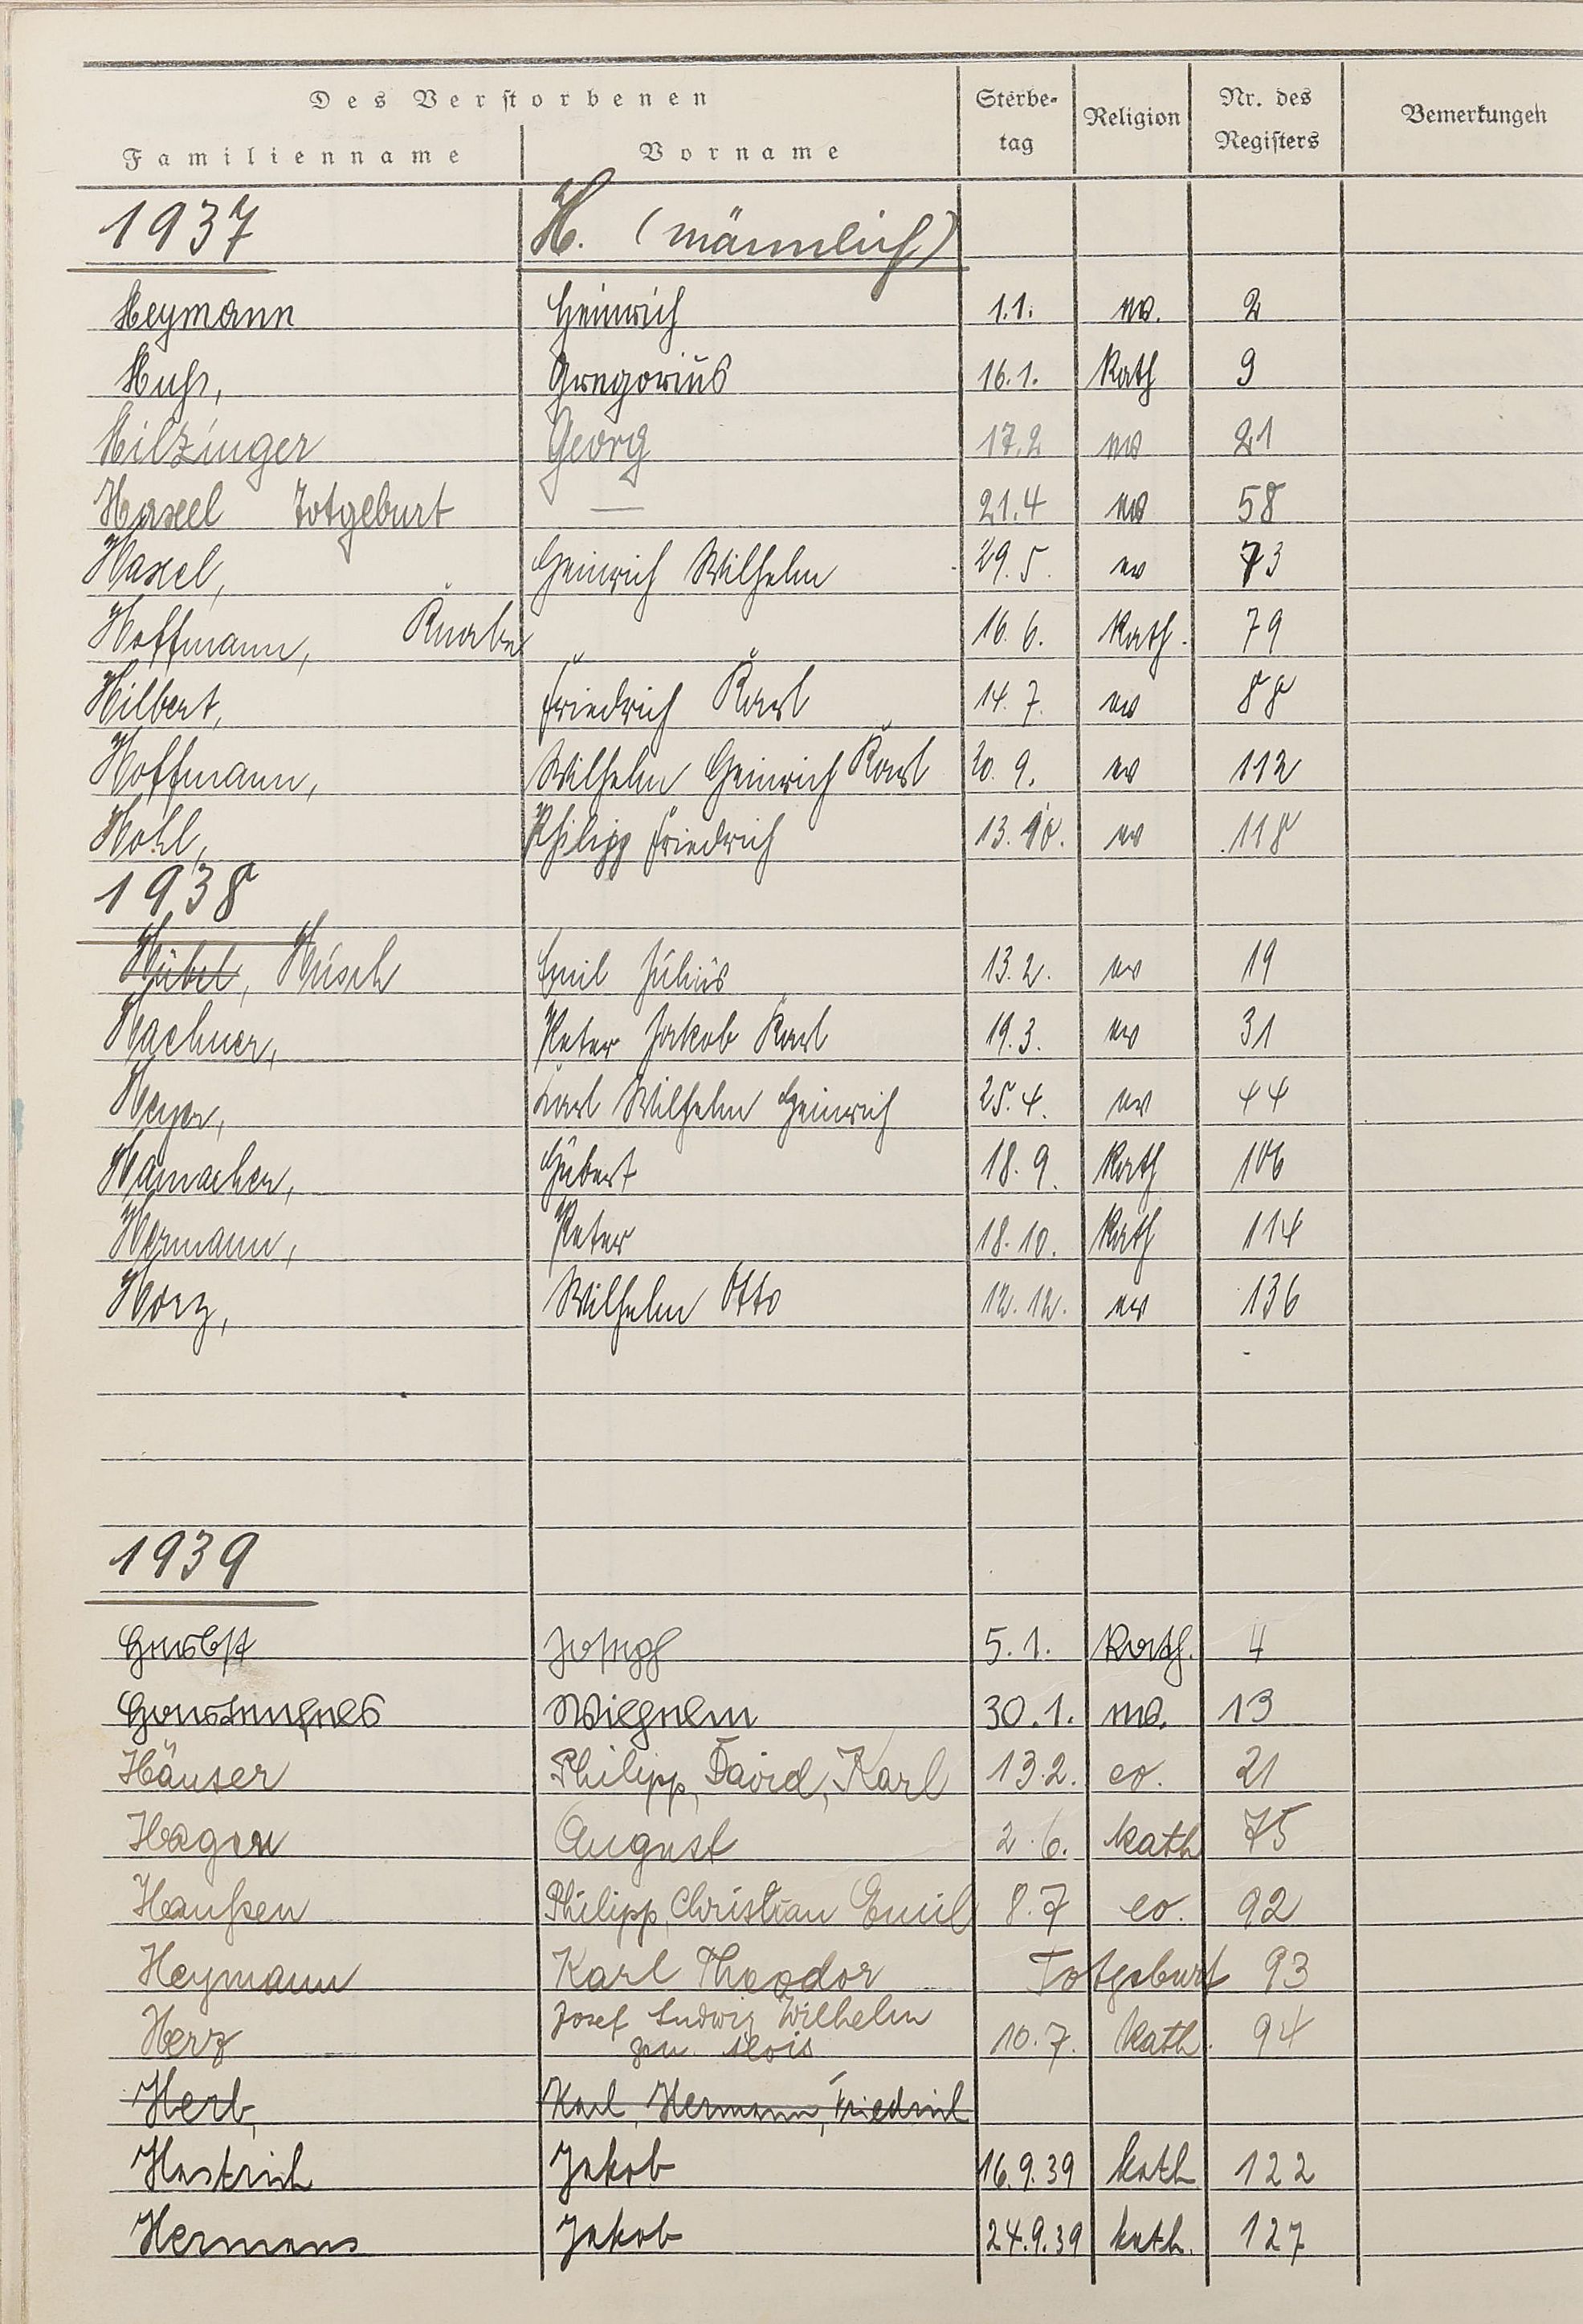 Des Verstorbenen
Familienname Vorname Sterbetag Religion Nr. des Registers Bemerkungen
1937 H. (männlich)
Heymann Heinrich 1.1. ev. 2
Gregorius 16.1. Kath 9
Hilzinger Georg 17.2 ev 21
Haxel Totgeburt — 21.4 ev 58
Haxel, Heinrich Wilhelm 29.5. ev 73
Hoffmann, Knabe 16.6. Kath. 79
Hilbert, Friedrich Karl 14.7. ev 88
Hoffmann, Wilhelm Heinrich Karl 20.9. ev 112
Hohl, Philipp Friedrich 13.10. ev 118
1938
Hübel, Hüsch Emil Julius 13.2. ev 19
Hachner, Peter Jakob Karl 19.3. ev 31
Heyer, Karl Wilhelm Heinrich 25.4. ev 44
Hamacher, Hubert 18.9. Kath 106
Hermann, Peter 18.10. Kath 114
Horz, Wilhelm Otto 12.12. ev 136
1939
Herbst Joseph 5.1. Kath. 4
Wilhelm 30.1. ev. 13
Häuser Philipp, David, Karl 13.2. ev. 21
Hagen August 2.6. Kath 75
Haußen Philipp, Christian Emil 8.7 ev. 92
Heymann Karl Theodor Totgeburt 93
Herz Josef Ludwig Wilhelm
gen. Alois 10.7. Kath. 94
Herb, Karl, Hermann, Friedrich
Hastrich Jakob 16.9.39 kath 122
Hermans Jakob 24.9.39 kath. 127